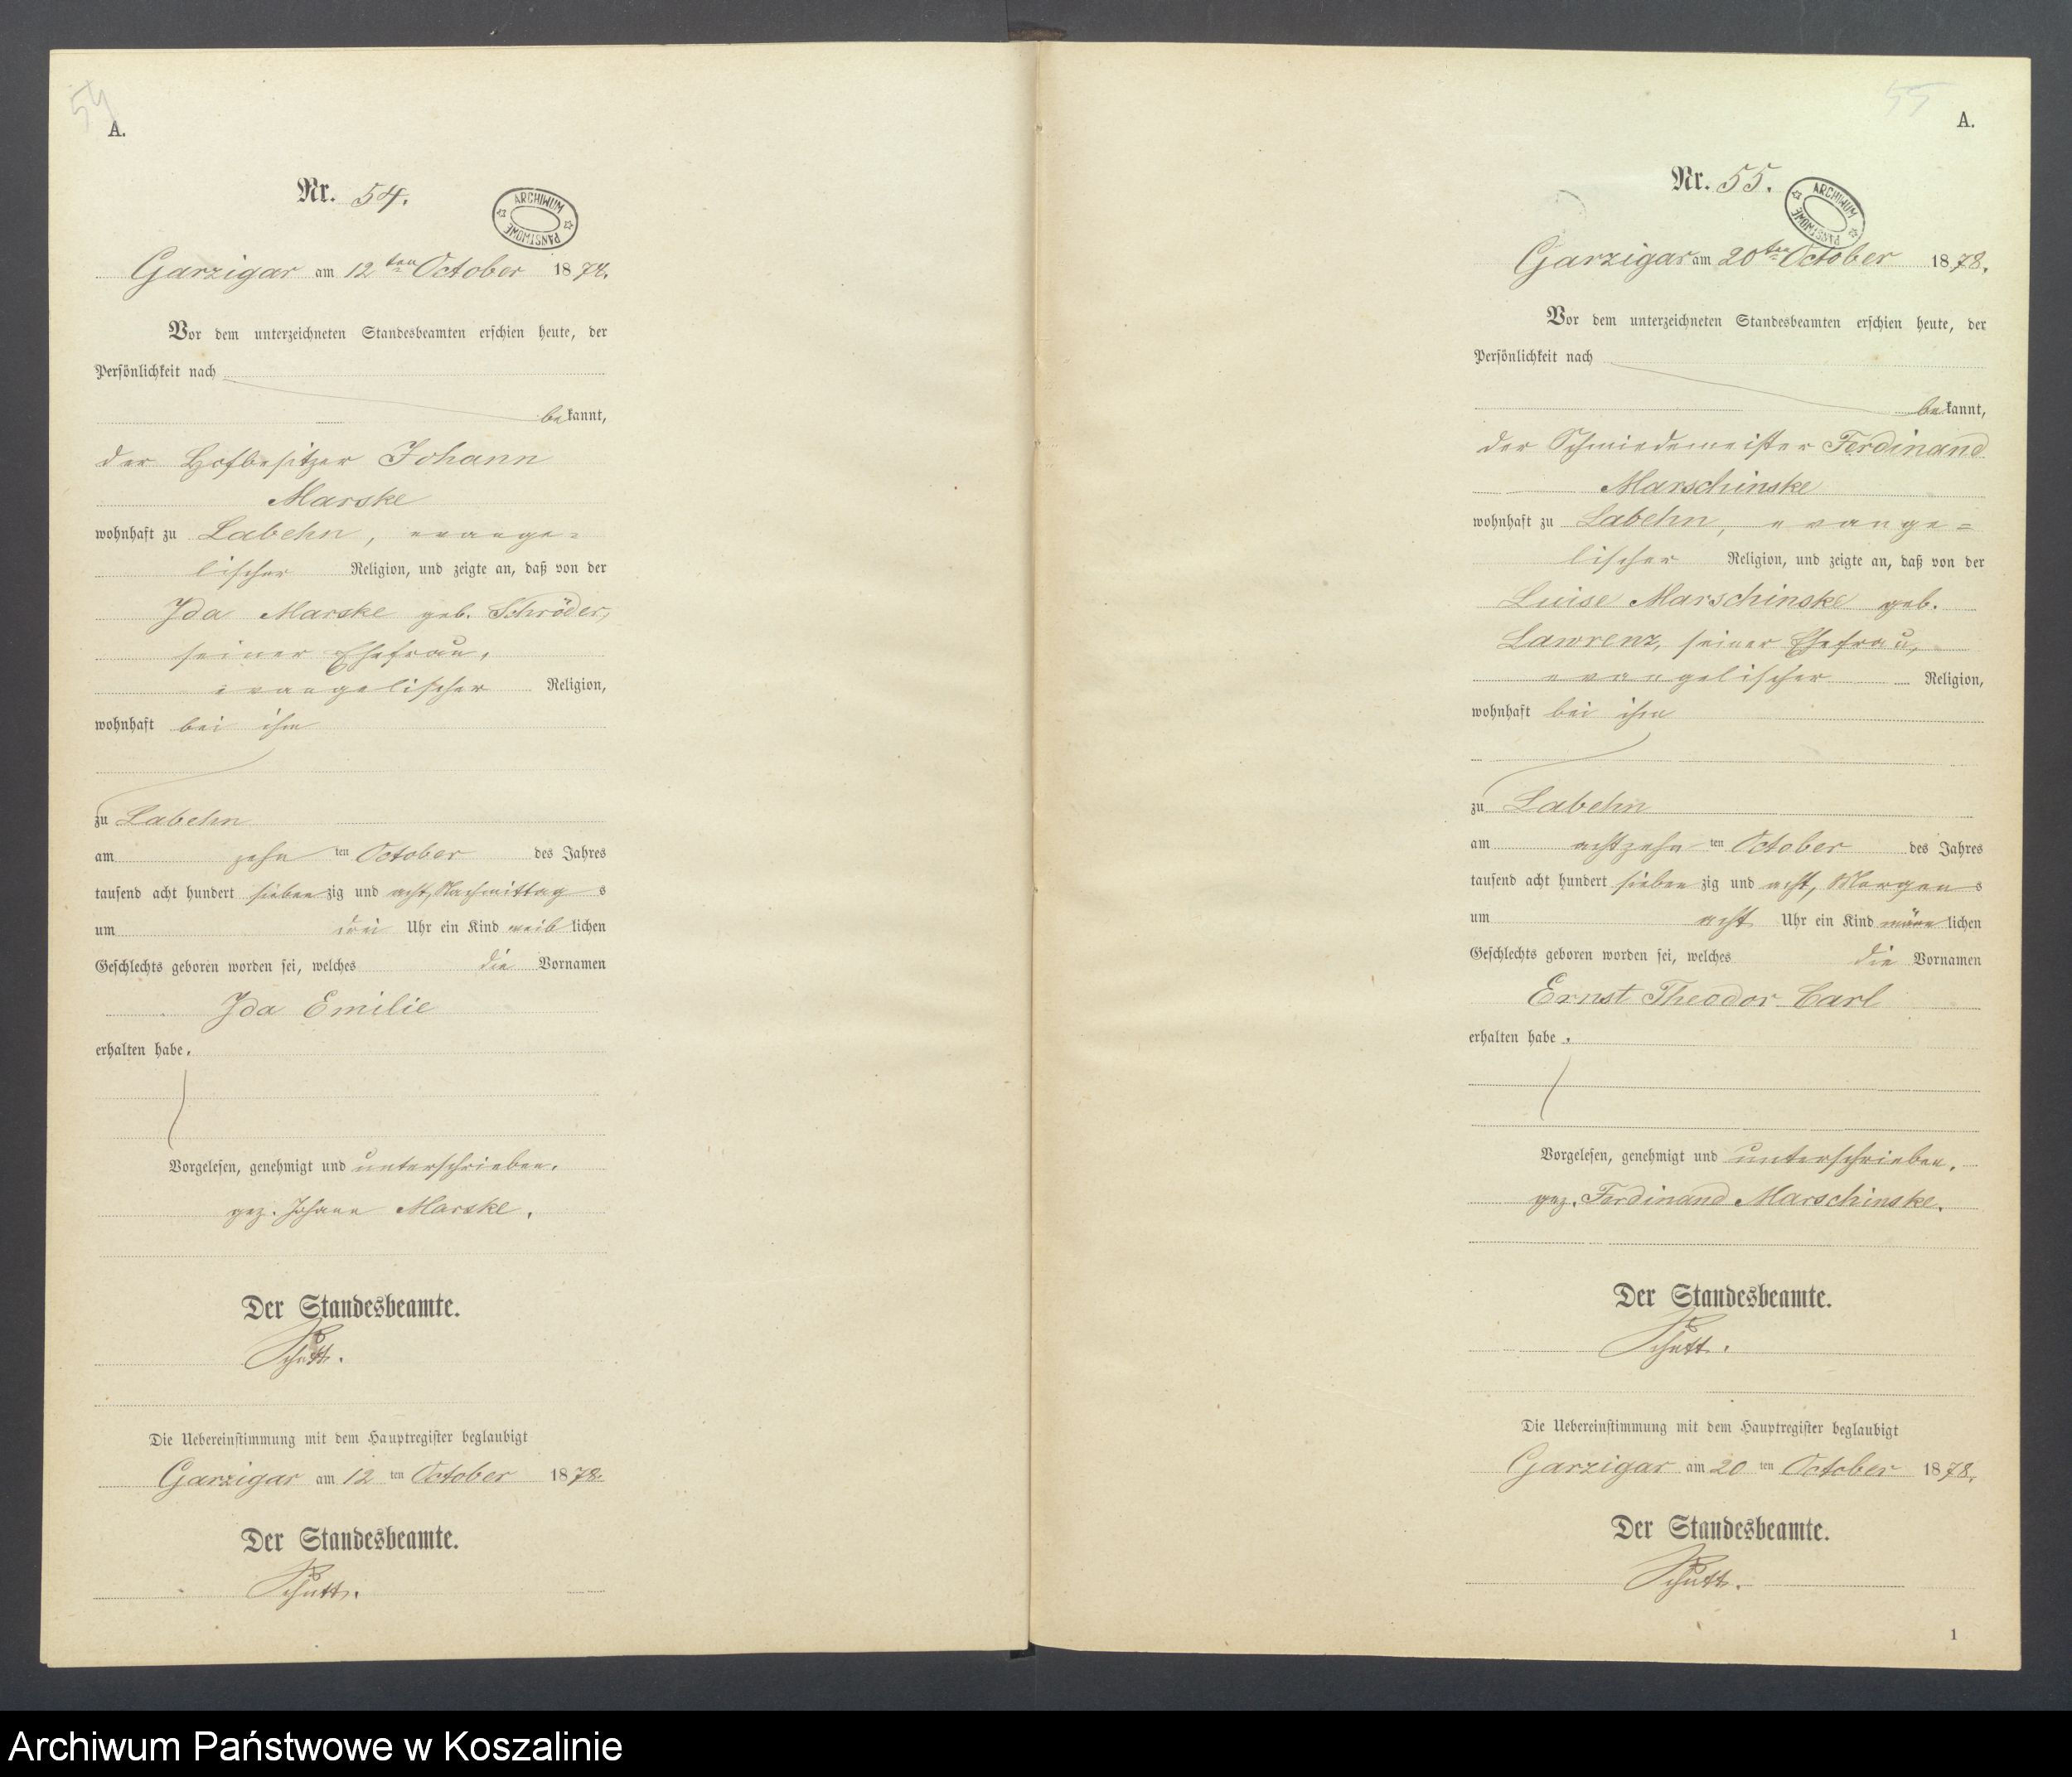 54
A.
Nr. 54.
ARCHIWUM PAŃSTWOWE
Garzigar am 12ten October 1878.
Vor dem unterzeichneten Standesbeamten erschien heute, der
Persönlichkeit nach
bekannt,
der Hofbesitzer Johann
Marske
wohnhaft zu Labehn, evange=
lischer Religion, und zeigte an, daß von der
Ida Marske geb. Schröder,
seiner Ehefrau,
evangelischer Religion,
wohnhaft bei ihm
zu Labehn
am zehn ten October des Jahres
tausend acht hundert siebenzig und acht, Nachmittag s
um drei Uhr ein Kind weiblichen
Geschlechts geboren worden sei, welches die Vornamen
Ida Emilie
erhalten habe.
Vorgelesen, genehmigt und unterschrieben.
gez. Johann Marske.
Der Standesbeamte.
Schutt.
Die Uebereinstimmung mit dem Hauptregister beglaubigt
Garzigar am 12 ten October 1878.
Der Standesbeamte.
Schutt.
55
A.
Nr. 55.
ARCHIWUM PAŃSTWOWE
Garzigar am 20ten October 1878.
Vor dem unterzeichneten Standesbeamten erschien heute, der
Persönlichkeit nach
bekannt,
der Schmiedemeister Ferdinand
Marschinske
wohnhaft zu Labehn, evange=
lischer Religion, und zeigte an, daß von der
Luise Marschinske geb.
Lawrenz, seiner Ehefrau,
evangelischer Religion,
wohnhaft bei ihm
zu Labehn
am achtzehn ten October des Jahres
tausend acht hundert siebenzig und acht, Morgen s
um acht Uhr ein Kind männlichen
Geschlechts geboren worden sei, welches die Vornamen
Ernst Theodor Carl
erhalten habe.
Vorgelesen, genehmigt und unterschrieben.
gez. Ferdinand Marschinske.
Der Standesbeamte.
Schutt.
Die Uebereinstimmung mit dem Hauptregister beglaubigt
Garzigar am 20 ten October 1878.
Der Standesbeamte.
Schutt.
1
Archiwum Państwowe w Koszalinie